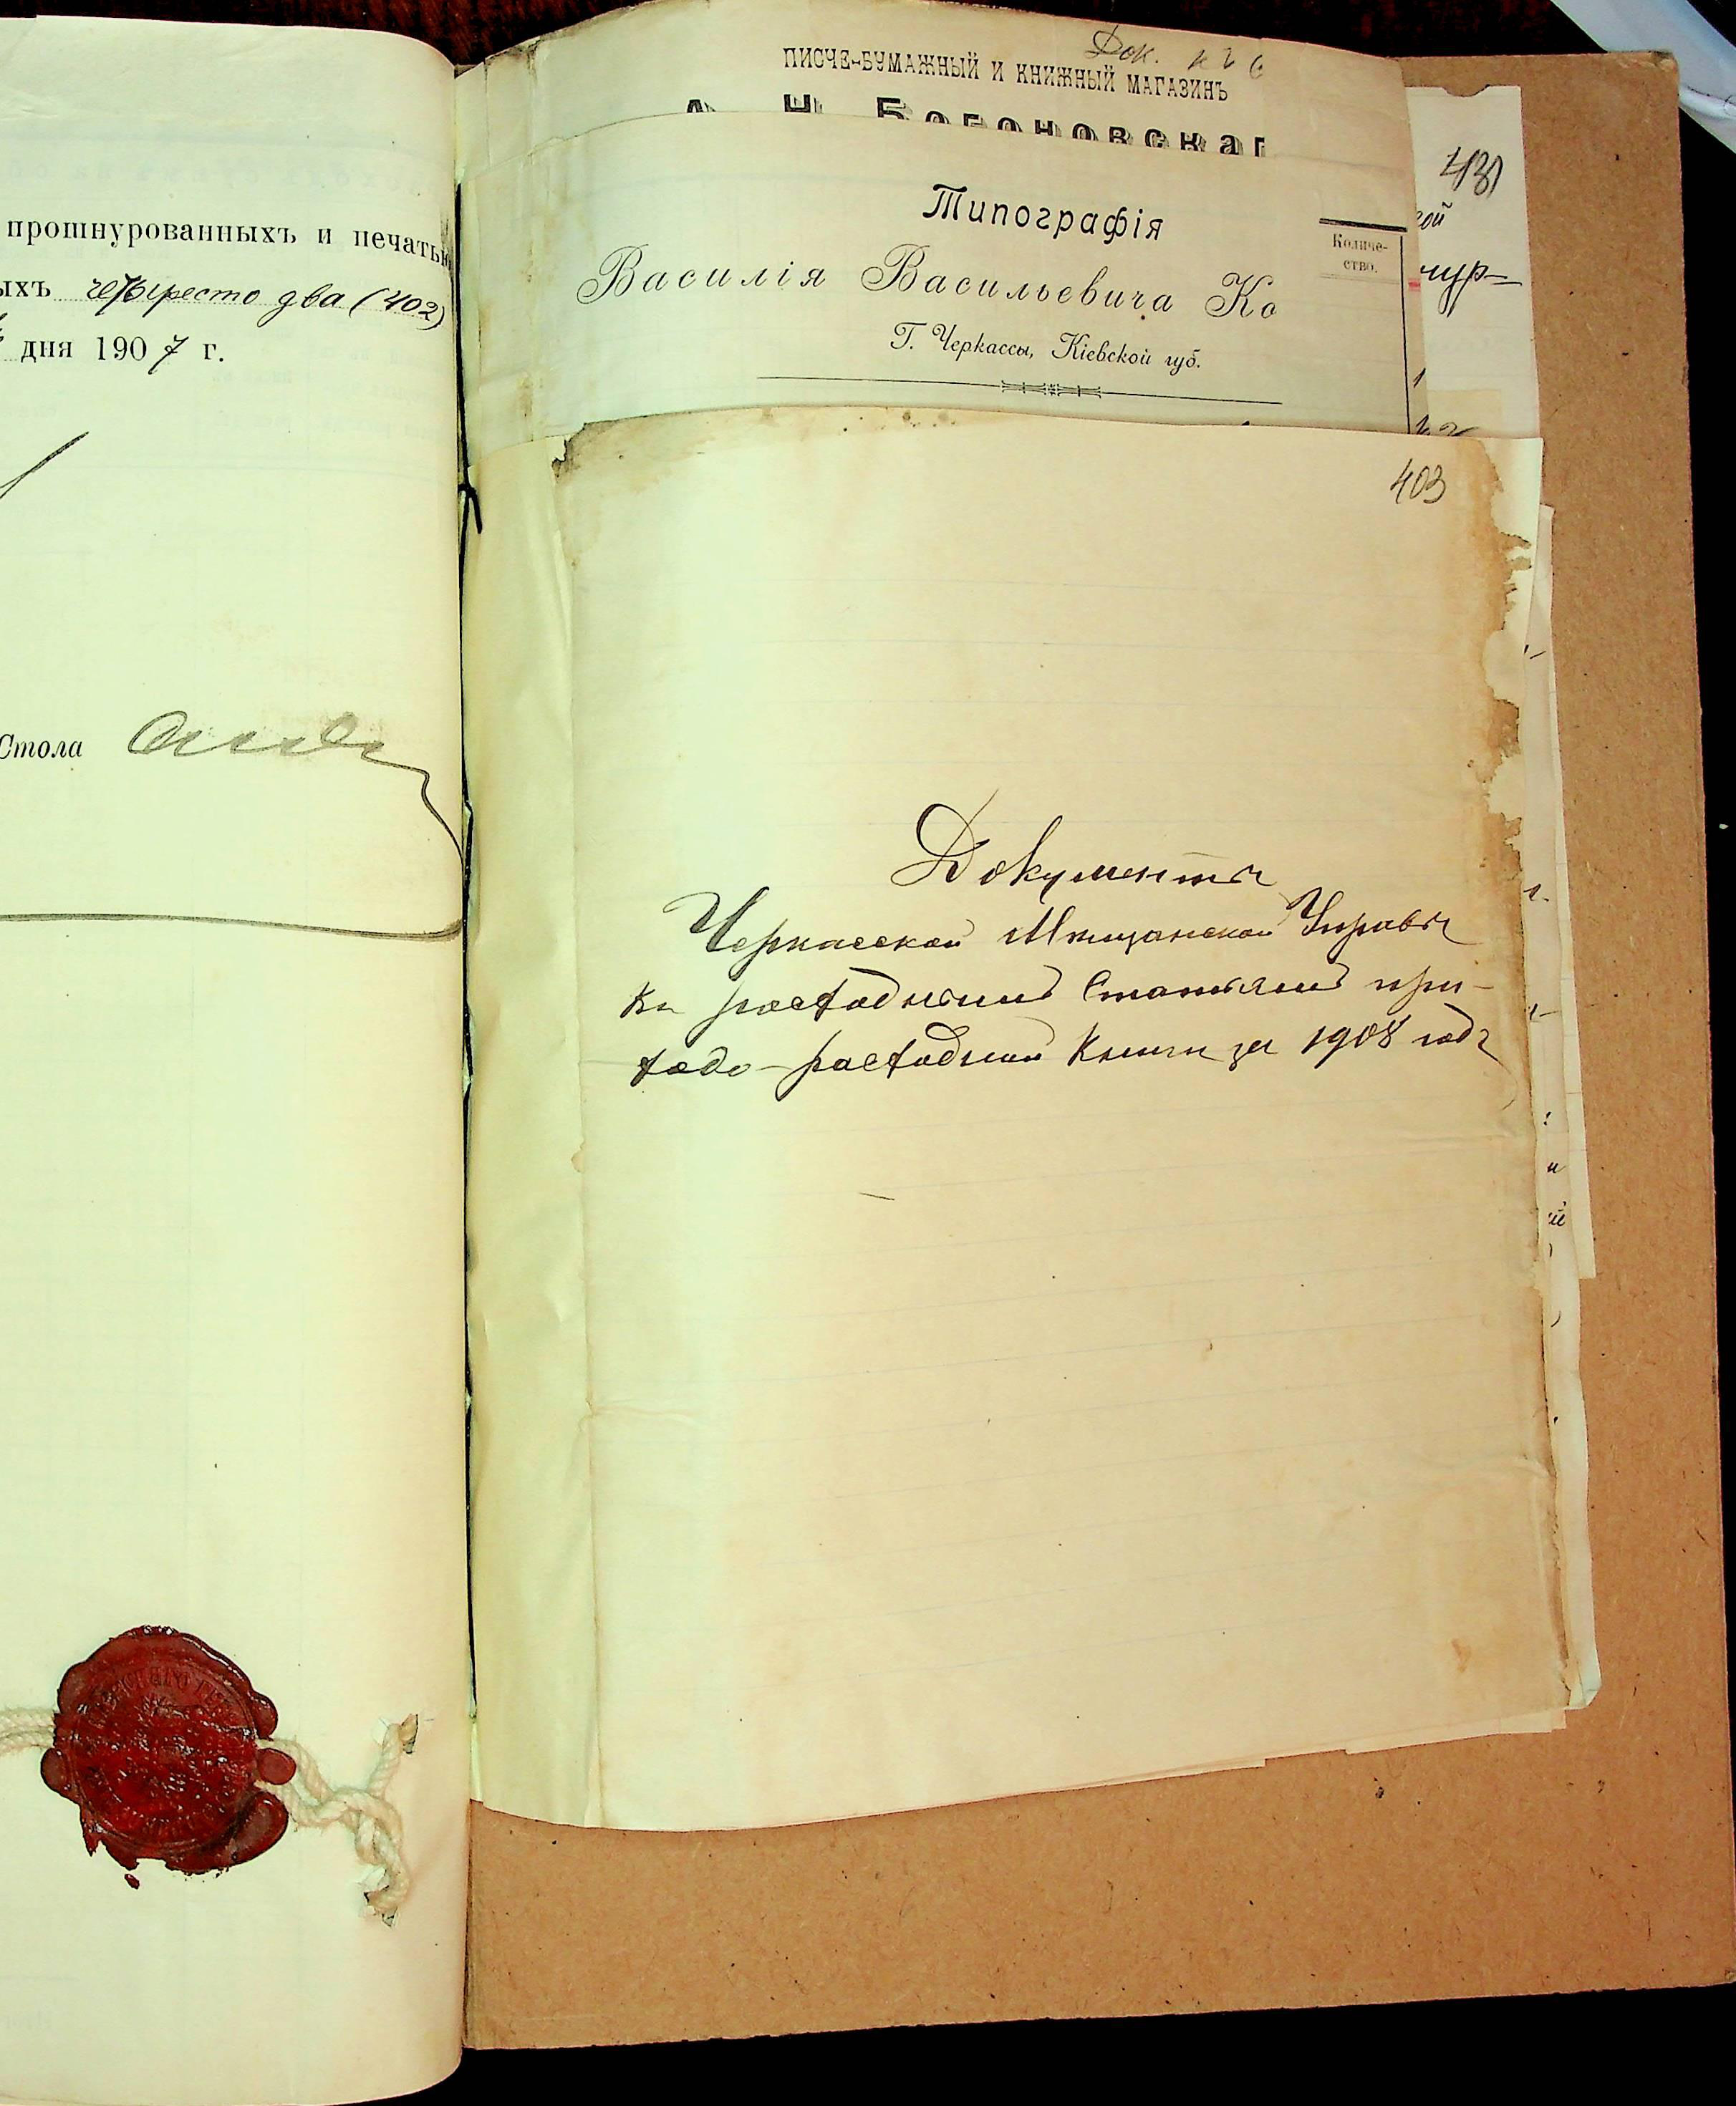 прошнурованныхъ и печатью
ыхъ четыресто два (402)
дня 1907 г.
Стола
Док. к
ПИСЧЕ-БУМАЖНЫЙ И КНИЖНЫЙ МАГАЗИНЪ
А. Н. Богоновскаг
Типографія
Василія Васильевича Ко
Г. Черкассы, Кіевской губ.
Количе-
ство.
431
ой
чур-
403
Документы
Черкасской Мѣщанской Управы
къ расходнымъ статьямъ при-
ходо-расходной книги за 1908 годъ